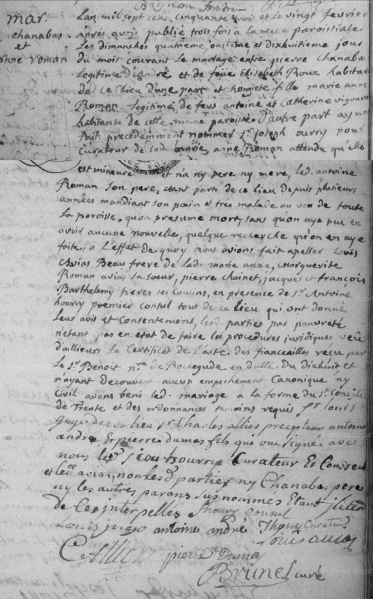 mar.
chanabas
et
anne roman
L'an mil sept cens cinquante trois et le vingt fevrier
apres avoir publié trois fois a la messe paroissiale
les dimanches quatrieme, onzieme et dixhuitieme jour
du mois courant le mariage entre pierre Chanabas
legitime de andré et de feue Elisabeth Roux habitant
de ce lieu d'une part et honnete fille marie anne
Roman legitime de feus antoine et Catherine
habitante de cette meme paroisse d'autre part
fait precedemment nommer Sr joseph pour
Curateur de lad. marie anne Roman attendu qu'elle
est mineure et n'a ny pere ny mere, led. antoine
Roman son pere, etant parti de ce lieu depuis plusieurs
années mandiant son pain et tres malade au vu de toute
la paroisse, qu'on presume mort, sans qu'on aye pu en
avoir aucune nouvelle, quelque recherche qu'on en aye
faite, a l'effet de quoy nous avions fait apeller Louis
avias Beau frere de lad. marie anne, marguerite
Roman avias sa soeur, pierre chainet, jacques et françois
Barthelemy freres ses cousins, en presence de Sr Antoine
houvry premier consul tout de ce lieu qui ont donné
leur avis et consentement, lesd. parties par pauvreté
n'etant pas en etat de faire les procedures juridiques veu
d'ailleurs le Certificat de l'acte des fiancailles receu par
le Sr Benoit nre de Rochegude en datte du dixhuit et
n'ayant decouvert aucun empechement Canonique ny
Civil avons beni led. mariage a la forme du St Concile
de Trente et des ordonnances temoins requis Sr louis
de ce lieu Sr Charles allies precepteur antoine
andré et pierre dumas fils que ont signés avec
nous led. Sr houvry Curateur et Consul
et led. avias, non lesd. parties ny Chanabas pere
ny les autres parans susnommés Etant illiterés
de ce interpellés houvry consul
Louis antoine andré Curateur
Louis avias
C Allies pierre Duma
Brunel curé